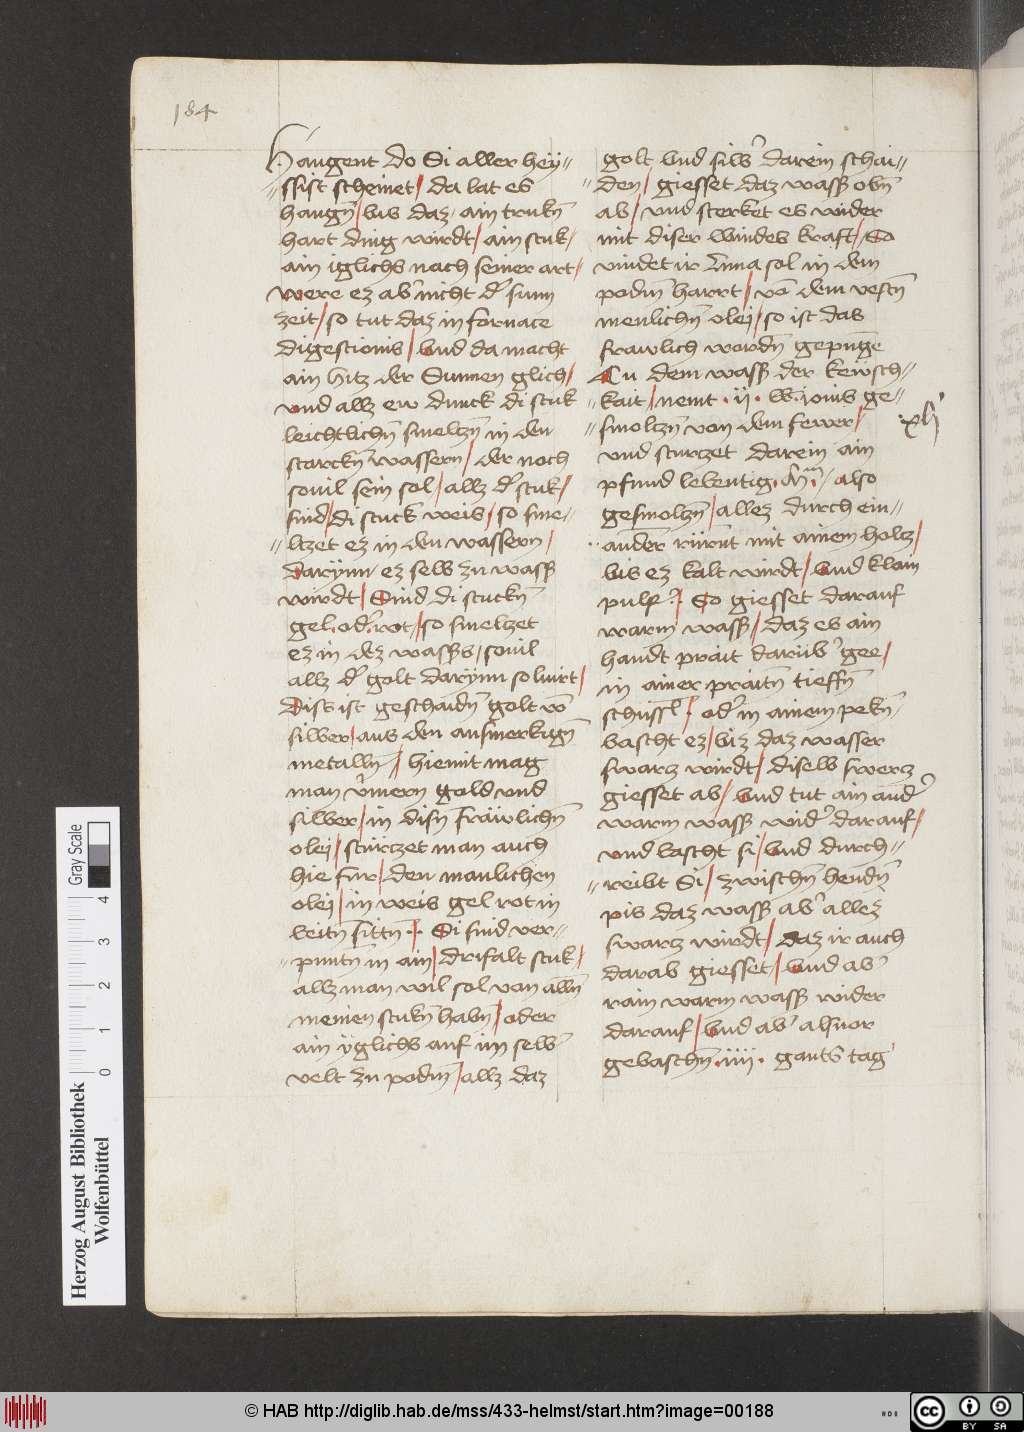 184
Hangent do Si aller hey//
//ssist scheinet / da lat es
hangn̄ / bis daz, ain trukn̄
hart ding wirdt / ain stuk /
ain iglichs nach seiner art /
were ez ab' nicht d' sunn
zeit / so tut daz in fornace
digestionis / vnd da macht
ain hitz der Sunnen glich /
vnd allz ew dunck di stuk
leichtlichn̄ smeltzn̄ in den
starckn̄ wassern / der noch
souil sein sol / allz d' stuk /
sind / di stuck weis / so sme//
//ltzet ez in den wassern /
darynn, ez selb zu wass
wirdt / Sind di stuckn̄
gel. od' rot / so smeltzet
ez in dez wassers, souil
allz d' golt darynn soluirt /
Diss ist geschaidn̄ golt vō
silber / aus den ausmerkign̄
metalln̄ / hiemit mag
man v'mern gold vnd
silber / in disn̄ fräwlichn̄
olei / stürtzet man auch
hie für / den manlichen
olei / in weis gel rot in
beitn̄ sittn̄ ·/· Si sind ver//
//puntn̄ in ain / drifalt stuk /
allz man wil sol von alln̄
meinen stukn̄ habn̄ / oder
ain yglichs auf im selb'
velt zu podm̄ / allz daz
golt vnd silb' darein schai//
//den / giesset daz wass obn̄
ab / vnd sterket es wider
mit diser windes kraft / So
vindet ir Luna sol in dem
podm̄ harrt / vō dem vestn̄
menlichn̄ olei / so ist das
frawlich wordn̄ gepunge
Zu dem wass der kewsch//
//kait / nemt · ij · ge//
xlj
//smoltzn̄ von dem fewer /
vnd sturtzet darein ain
pfund lebentig. / also
gesmoltzn̄ / allez durch ein//
ander rürnt mit ainem holtz /
bis ez kalt wirdt / vnd klain
pulf' / So giesset darauf
warm wass / daz es ain
handt prait darüb' gee /
in ainer praitn̄ tieffn̄
schussl / od' in ainem pekn̄,
bascht ez / biz daz wasser
swartz wirdt / diselb swertz
giesset ab / vnd tut ain and'
warm wass wid' darauf /
vnd bascht si / vnd durch//
//reibt Si / zwischn̄ hendn̄
pis daz wass ab' allez
swartz wirdt / Daz ir auch
darab giesset / vnd ab'
rain warm wass wider
darauf / vnd ab' alsuor
gebaschn̄ · iiij · gants tag
Herzog August Bibliothek
Wolfenbüttel
Gray Scale
0 1 2 3 4
© HAB http://diglib.hab.de/mss/433-helmst/start.htm?image=00188
HAB
cc BY SA